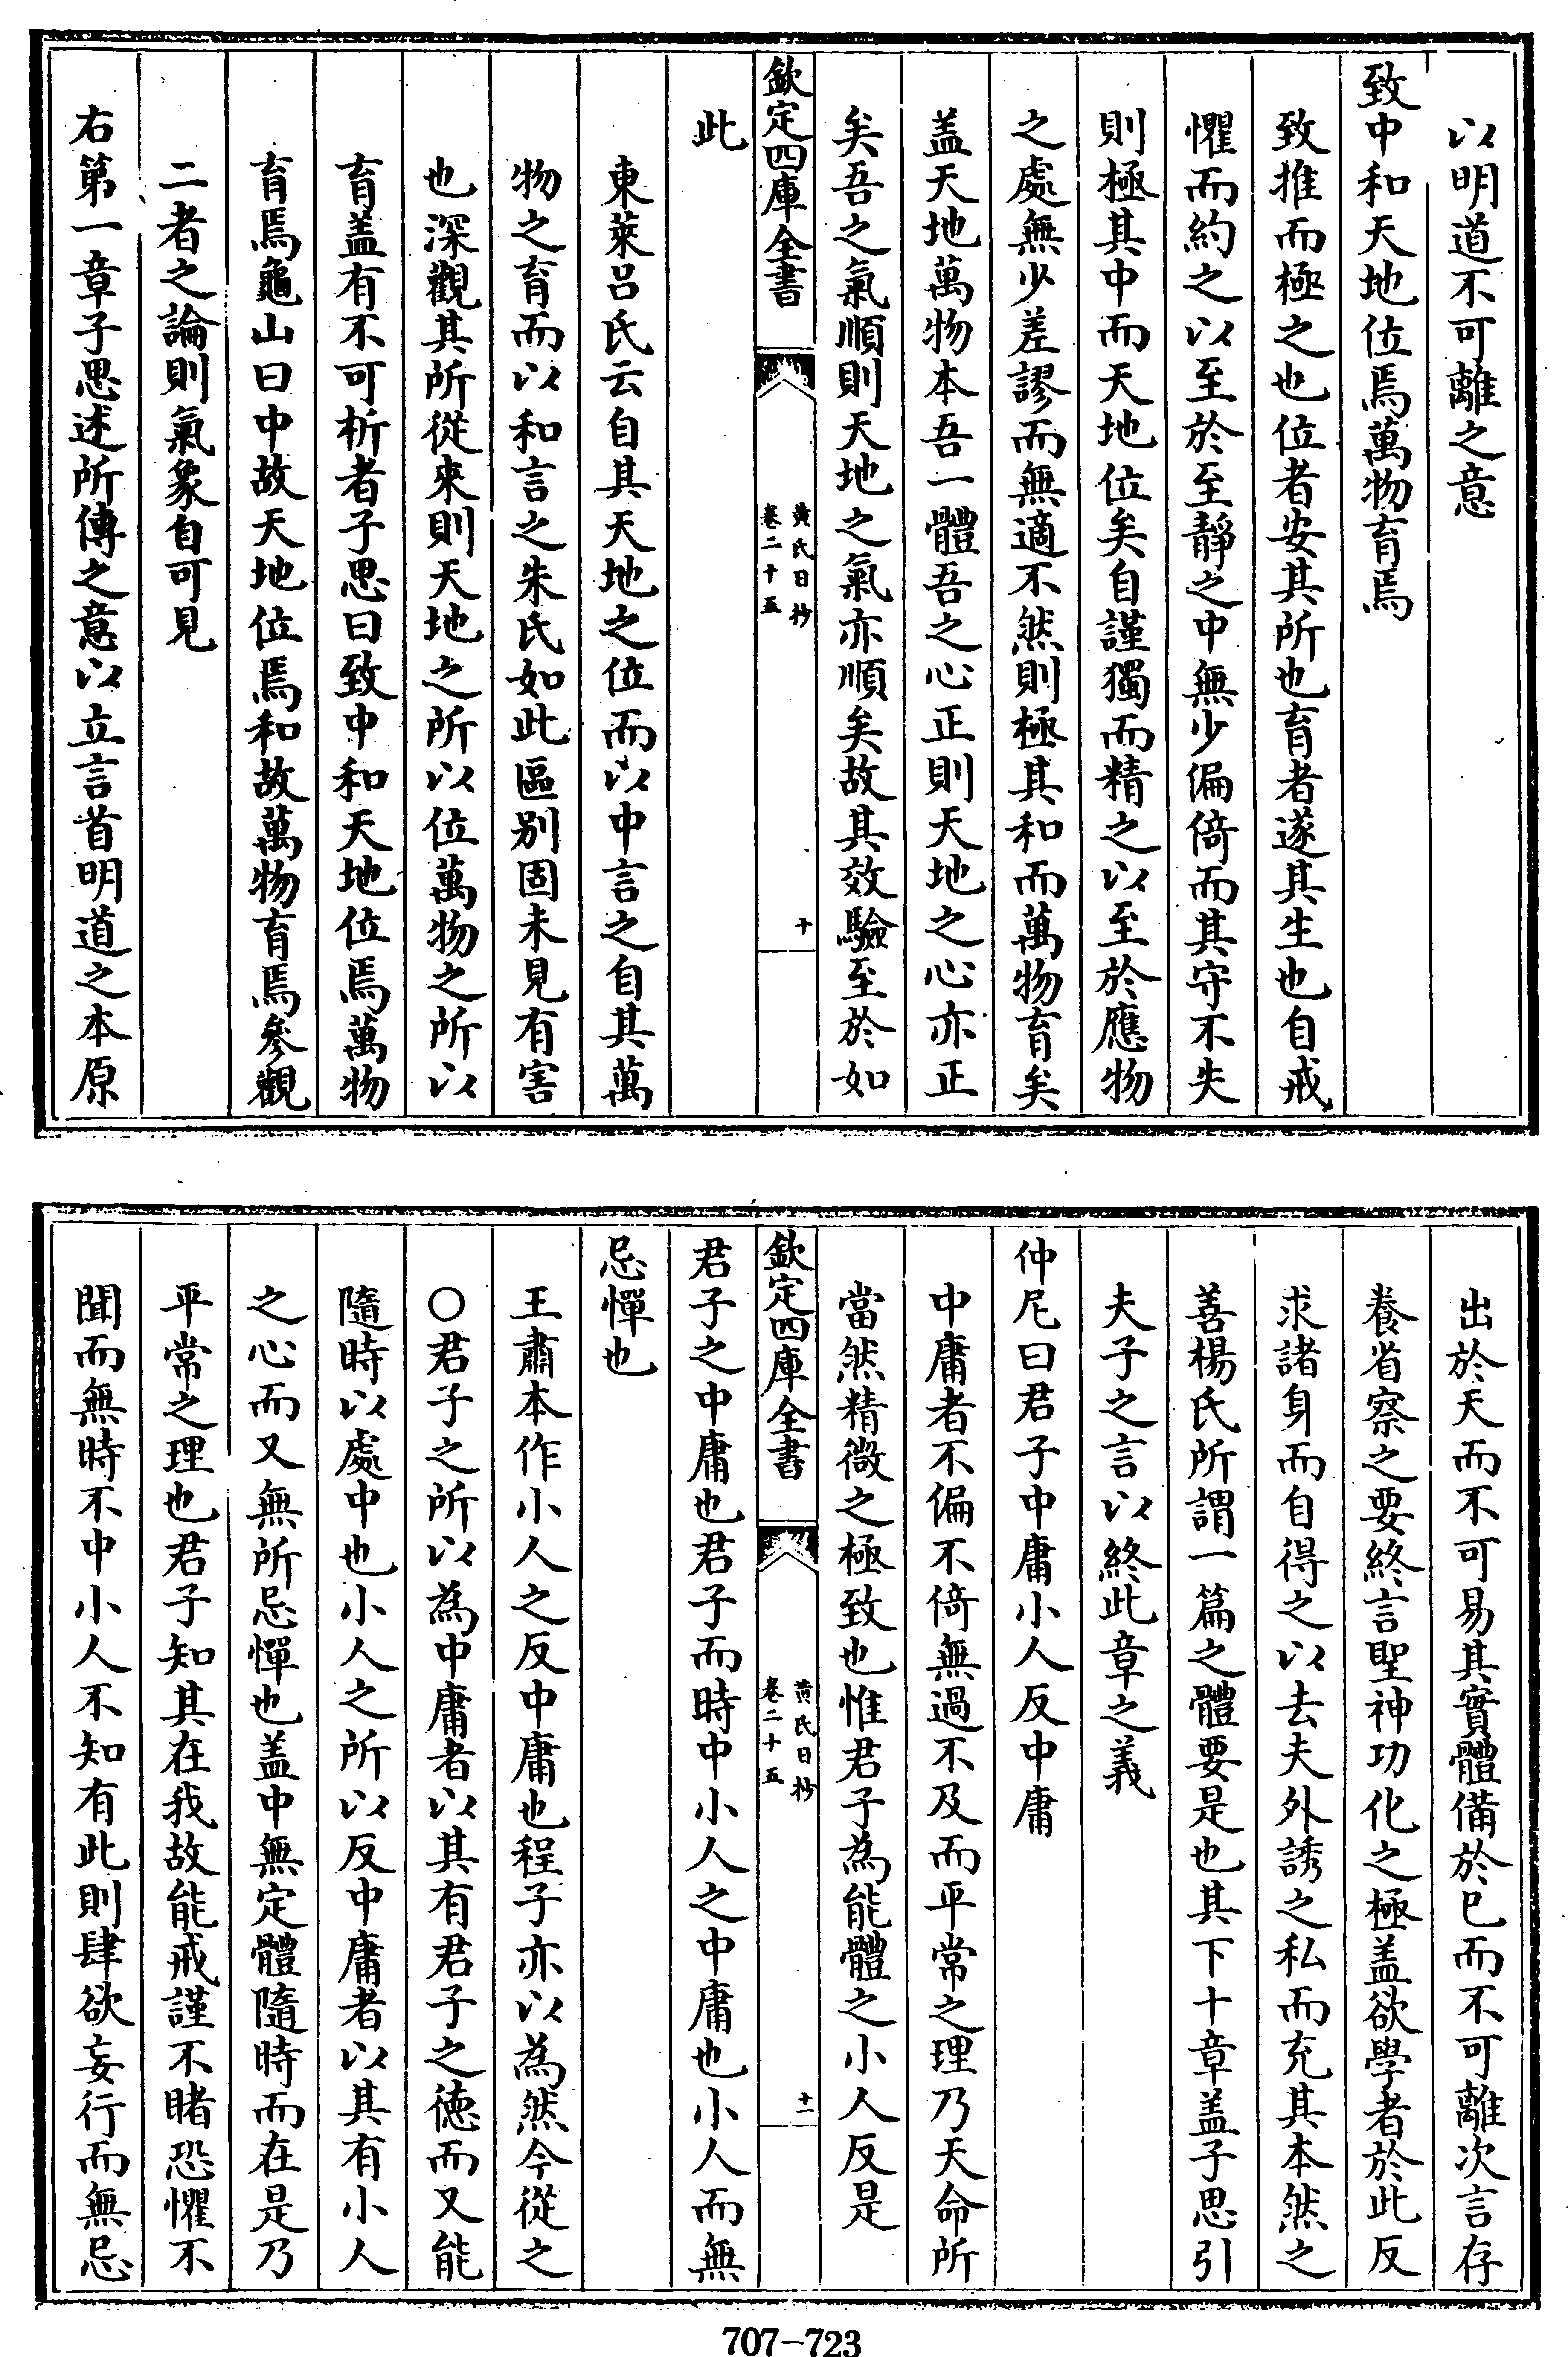 以明道不可離之意
致中和天地位焉萬物育焉
致推而極之也位者安其所也育者遂其生也自戒
懼而約之以至於至靜之中無少偏倚而其守不失
則極其中而天地位矣自謹獨而精之以至於應物
之處無少差謬而無適不然則極其和而萬物育矣
盖天地萬物本吾一體吾之心正則天地之心亦正
矣吾之氣順則天地之氣亦順矣故其效驗至於如
欽定四庫全書
黃氏日抄
卷二十五
十
此
東萊呂氏云自其天地之位而以中言之自其萬
物之育而以和言之朱氏如此區别固未見有害
也深觀其所從來則天地之所以位萬物之所以
育盖有不可析者子思曰致中和天地位焉萬物
育焉龜山曰中故天地位焉和故萬物育焉參觀
二者之論則氣象自可見
右第一章子思述所傳之意以立言首明道之本原
出於天而不可易其實體備於已而不可離次言存
養省察之要終言聖神功化之極盖欲學者於此反
求諸身而自得之以去夫外誘之私而充其本然之
善楊氏所謂一篇之體要是也其下十章盖子思引
夫子之言以終此章之義
仲尼曰君子中庸小人反中庸
中庸者不偏不倚無過不及而平常之理乃天命所
當然精微之極致也惟君子為能體之小人反是
欽定四庫全書
黃氏日抄
卷二十五
十一
君子之中庸也君子而時中小人之中庸也小人而無
忌憚也
王肅本作小人之反中庸也程子亦以為然今從之
○君子之所以為中庸者以其有君子之徳而又能
隨時以處中也小人之所以反中庸者以其有小人
之心而又無所忌憚也盖中無定體隨時而在是乃
平常之理也君子知其在我故能戒謹不睹恐懼不
聞而無時不中小人不知有此則肆欲妄行而無忌
707-723